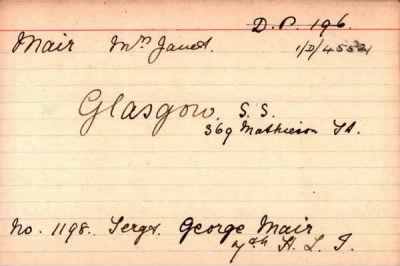 D.P. 196.
Mair Mrs Janet. 1/D/4552
Glasgow, S.S.
369 Mathieson St.
No. 1198. Sergt. George Mair
7th H. L. I.